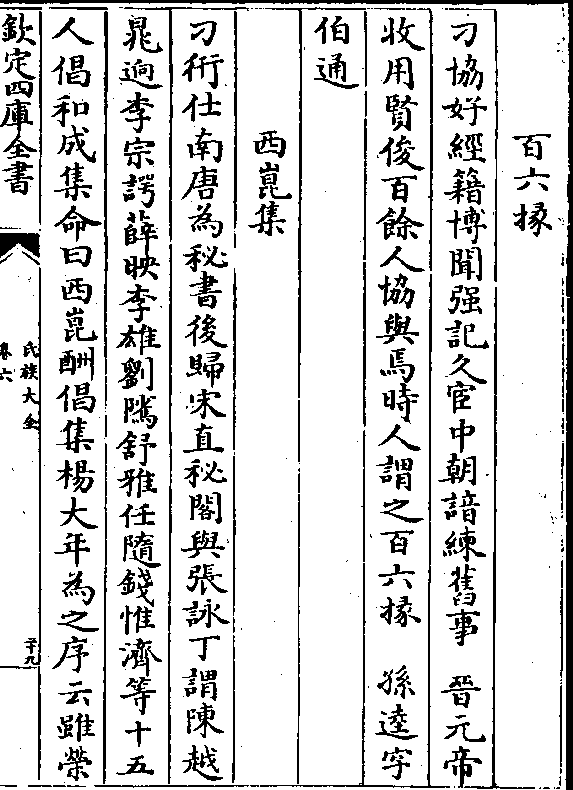 百六掾
刁協好經籍博聞强記久宦中朝諳練舊事　晉元帝
收用賢俊百餘人協與焉時人謂之百六掾　孫逵字
伯通
西崑集
刁衎仕南唐為秘書後歸宋直秘閣與張詠丁謂陳越
晁逈李宗諤薛映李維劉隲舒雅任隨錢惟濟等十五
人倡和成集命曰西崑酬倡集楊大年為之序云雖榮
欽定四庫全書
氏族大全
卷六
二十九